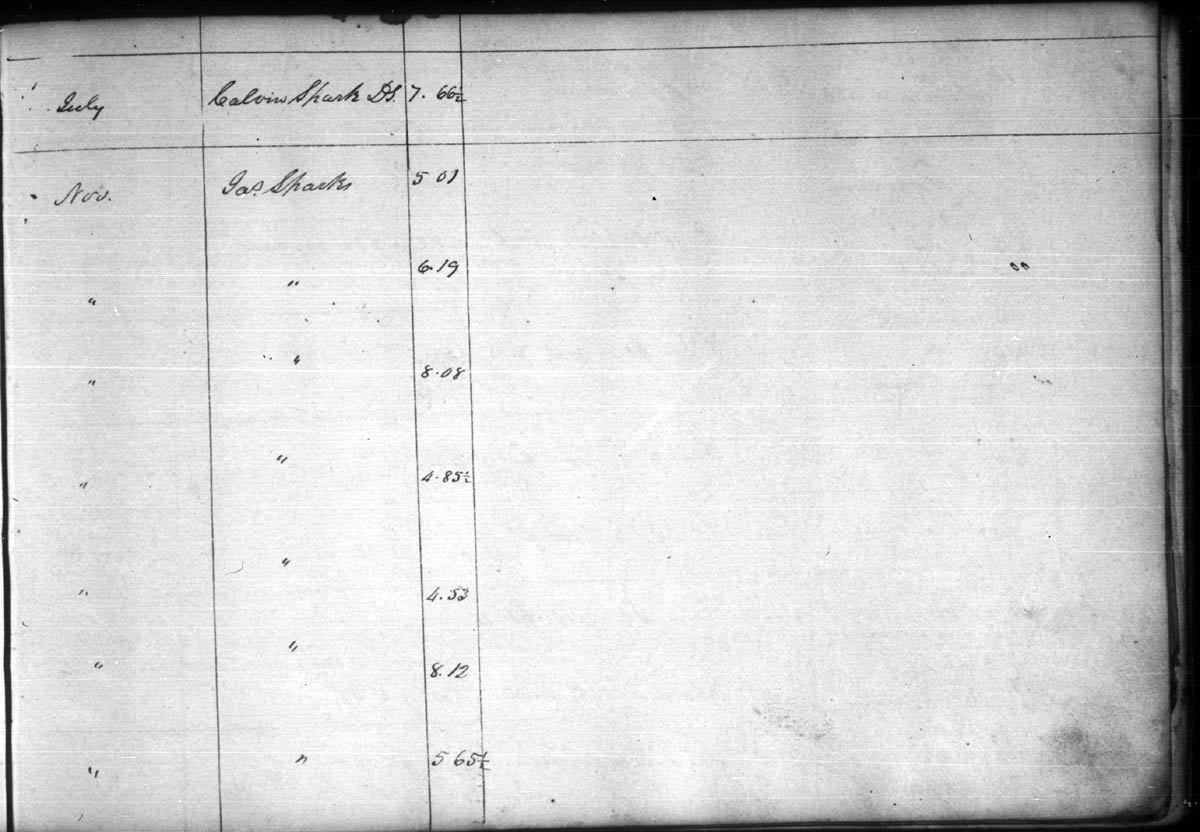 July Calvin Spark DS. 7. 66½
Nov. Jas. Sparks 5 01
" " 6.19
" " 8.08
" " 4.85½
" " 4.53
" " 8.12
" " 5 65½